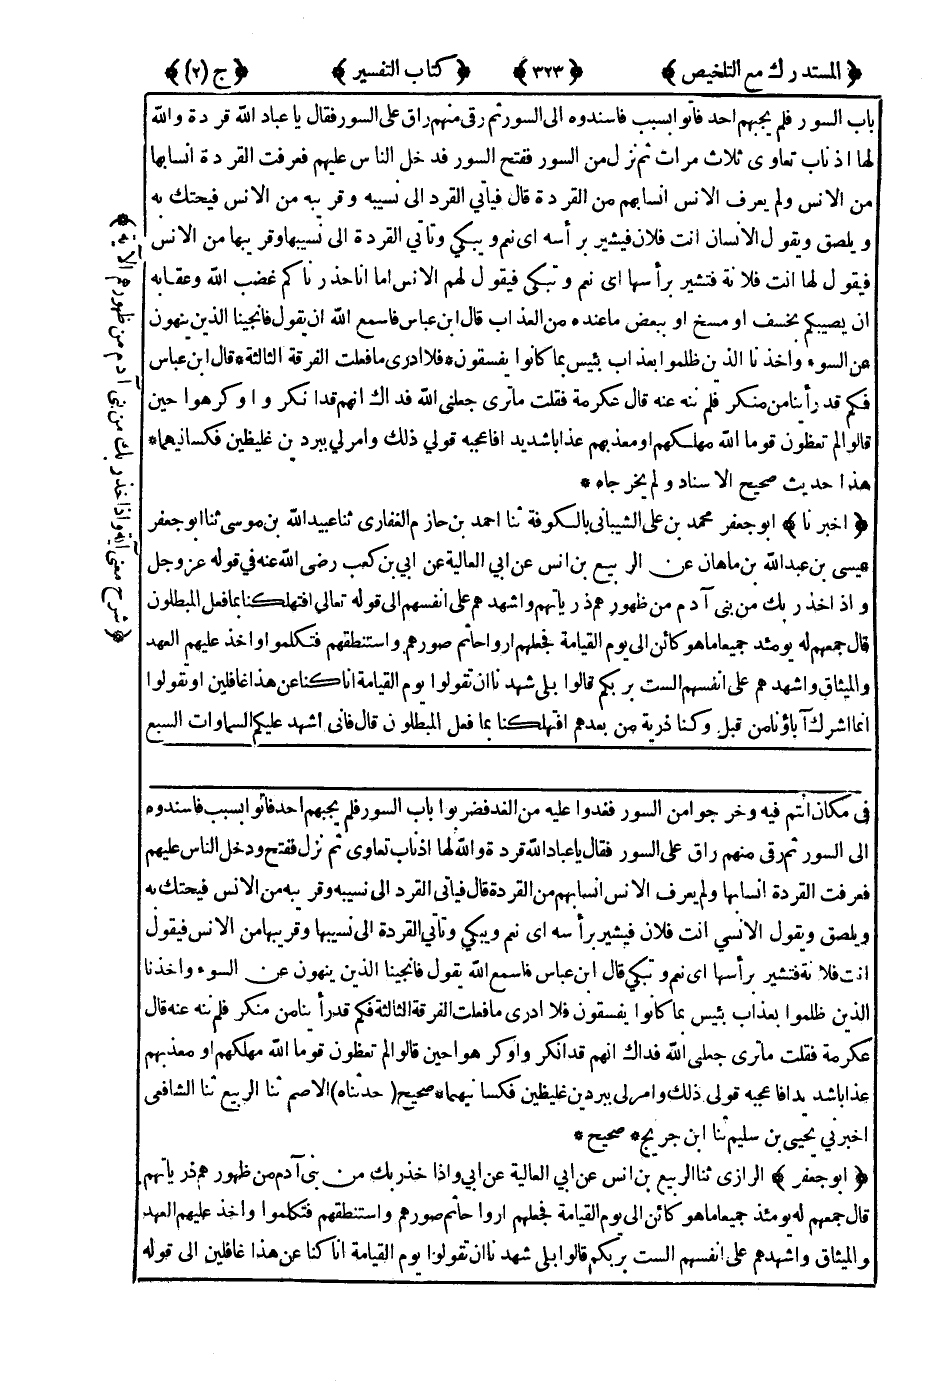 ﴿ المستدرك مع التلخيص ﴾ ﴿ ٣٢٣ ﴾ ﴿ كتاب التفسير ﴾ ﴿ ج (٢) ﴾
باب السور فلم يجبهم احد فأتوا بسبب فاسندوه الى السور ثم رقى منهم راق على السور فقال يا عباد الله قردة والله
لها اذناب تعاوى ثلاث مرات ثم نزل من السور ففتح السور فدخل الناس عليهم فعرفت القردة انسابها
من الانس ولم يعرف الانس انسابهم من القردة قال فيأتي القرد الى نسيبه وقريبه من الانس فيحتك به
ويلصق ويقول الانسان انت فلان فيشير برأسه اى نعم ويبكي وتأتي القردة الى نسيبها وقريبها من الانس
فيقول لها انت فلانة فتشير برأسها اى نعم وتبكي فيقول لهم الانس اما انا حذرناكم غضب الله وعقابه
ان يصيبكم بخسف او مسخ او ببعض ما عنده من العذاب قال ابن عباس فاسمع الله ان يقول فانجينا الذين ينهون
عن السوء واخذنا الذين ظلموا بعذاب بئيس بما كانوا يفسقون * فلا ادرى ما فعلت الفرقة الثالثة * قال ابن عباس
فكم قد رأينا من منكر فلم ننه عنه قال عكرمة فقلت ما ترى جعلنى الله فداك انهم قد انكروا وكرهوا حين
قالوا لم تعظون قوما الله مهلكهم او معذبهم عذابا شديد افاعجبه قولي ذلك وامر لي ببردين غليظين فكسانيهما *
هذا حديث صحيح الاسناد ولم يخرجاه *
﴿ اخبرنا ﴾ ابو جعفر محمد بن على الشيبانى بالكوفة ثنا احمد بن حازم الغفارى ثنا عبيد الله بن موسى ثنا ابو جعفر
عيسى بن عبد الله بن ماهان عن الربيع بن انس عن ابي العالية عن ابي بن كعب رضى الله عنه في قوله عز وجل
واذ اخذ ربك من بنى آدم من ظهورهم ذرياتهم واشهدهم على انفسهم الى قوله تعالى افتهلكنا بما فعل المبطلون
قال جمعهم له يومئذ جميعا ما هو كائن الى يوم القيامة فجعلهم ارواحا ثم صورهم واستنطقهم فتكلموا واخذ عليهم العهد
والميثاق واشهدهم على انفسهم الست بربكم قالوا بلى شهدنا ان تقولوا يوم القيامة انا كنا عن هذا غافلين او تقولوا
انما اشرك آباؤنا من قبل وكنا ذرية من بعدهم افتهلكنا بما فعل المبطلون قال فانى اشهد عليكم السماوات السبع
﴿ شرح معنى آية واذ اخذ ربك من بنى آدم من ظهورهم الآية ﴾
في مكان انتم فيه وخرجوا من السور فغدوا عليه من الغد فضربوا باب السور فلم يجبهم احد فأتوا بسبب فاسندوه
الى السور ثم رقى منهم راق على السور فقال يا عباد الله قردة والله لها اذناب تعاوى ثم نزل ففتح ودخل الناس عليهم
فعرفت القردة انسابها ولم يعرف الانس انسابهم من القردة قال فيأتى القرد الى نسيبه وقريبه من الانس فيحتك به
ويلصق ويقول الانسي انت فلان فيشير برأسه اى نعم ويبكي وتأتي القردة الى نسيبها وقريبها من الانس فيقول
انت فلانة فتشير برأسها اى نعم وتبكي قال ابن عباس فاسمع الله يقول فانجينا الذين ينهون عن السوء واخذنا
الذين ظلموا بعذاب بئيس بما كانوا يفسقون فلا ادرى ما فعلت الفرقة الثالثة فكم قد رأينا من منكر فلم ننه عنه قال
عكرمة فقلت ما ترى جعلى الله فداك انهم قد انكروا وكرهوا حين قالوا لم تعظون قوما الله مهلكهم او معذبهم
عذابا شديدا فاعجبه قولى ذلك وامر لى ببردين غليظين فكسانيهما * صحيح ( حدثناه ) الاصم ثنا الربيع ثنا الشافعى
اخبرني يحيى بن سليم ثنا ابن جريج * صحيح *
﴿ ابو جعفر ﴾ الرازى ثنا الربيع بن انس عن ابي العالية عن ابي واذا خذ ربك من بنى آدم من ظهورهم ذرياتهم
قال جمعهم له يومئذ جميعا ما هو كائن الى يوم القيامة فجعلهم ارواحا ثم صورهم واستنطقهم فتكلموا واخذ عليهم العهد
والميثاق واشهدهم على انفسهم الست بربكم قالوا بلى شهدنا ان تقولوا يوم القيامة انا كنا عن هذا غافلين الى قوله